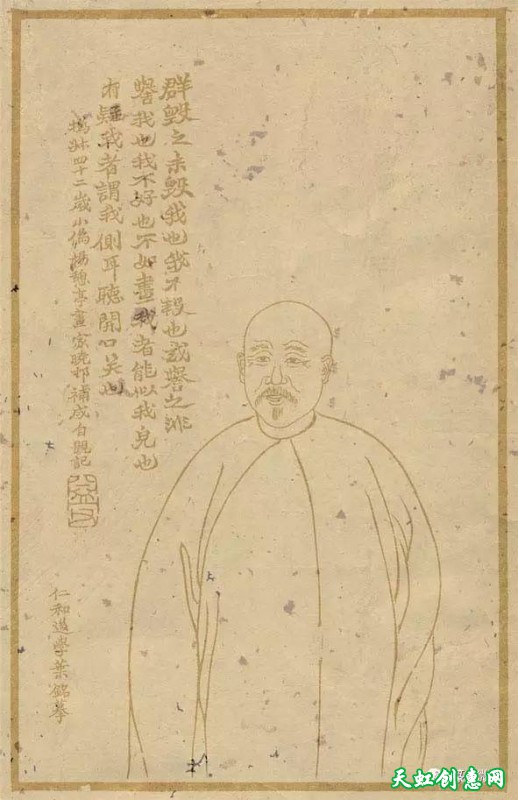 群毀之未毀我也我不報也或譽之非
譽我也我不好也不如畫我者能似我皃也
有疑我者謂我側耳聽開口笑也
撝叔四十二歲小像楊憩亭畫家曉邨補成自題記
仁和後學葉銘摹
天虹创惠网